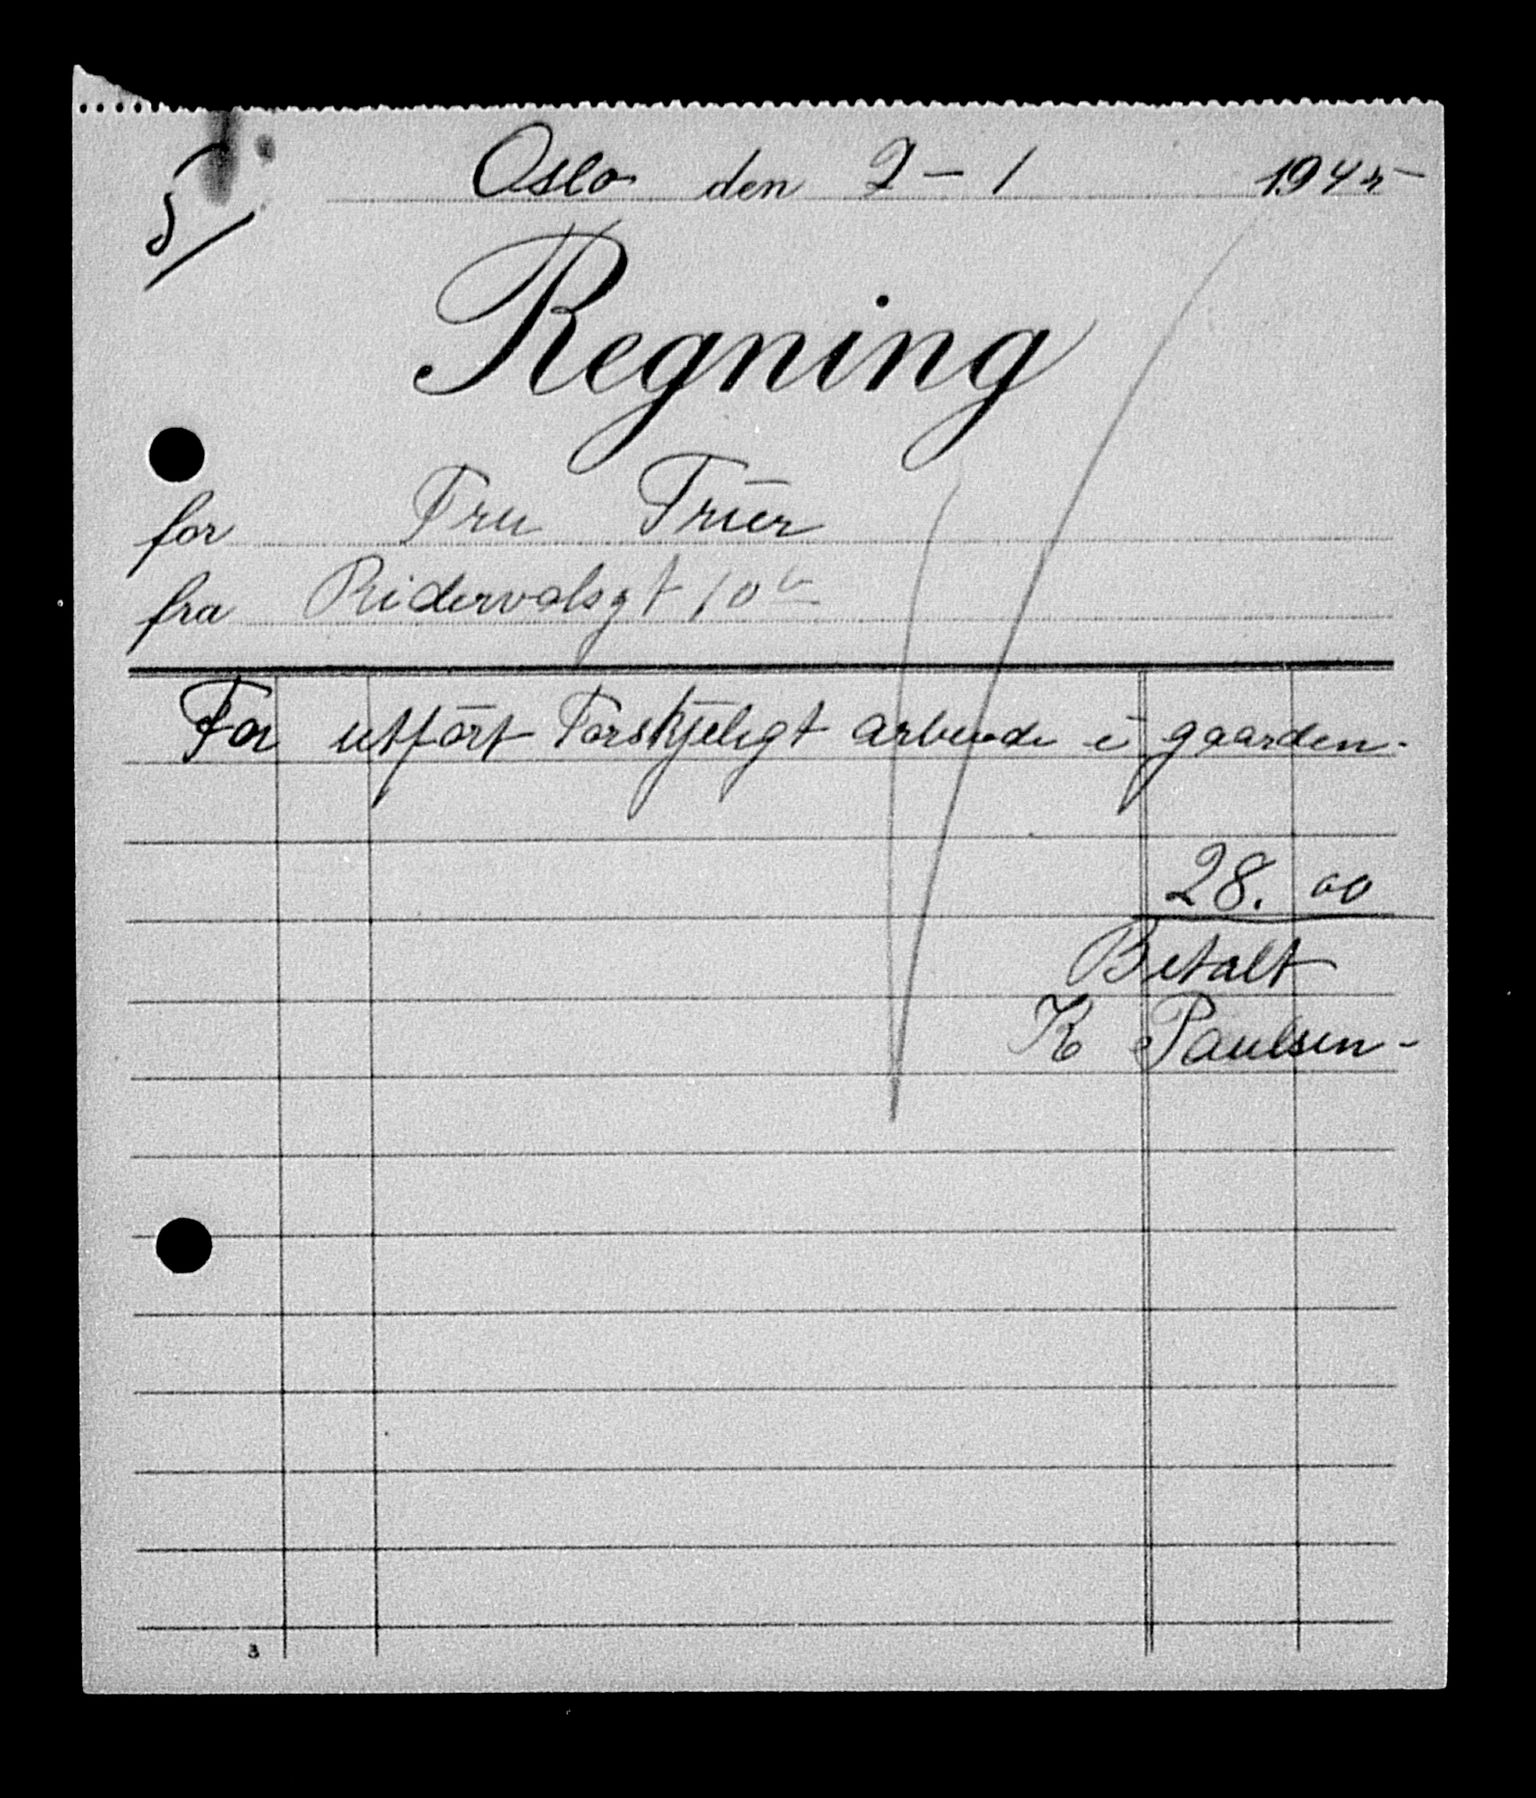 5
Oslo den 2 - 1 1945
Regning
for Fru Trier
fra Ridervolsgt 10 b
For utfört Forskjeligt arbeide i gaarden.
28.00
Betalt
K Paulsen
3